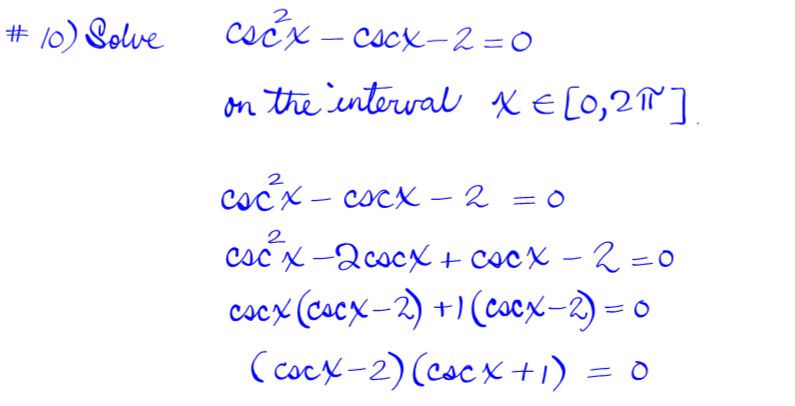 # 10) Solve csc²x – cscx – 2 = 0
on the interval x ∈ [0, 2π].
csc²x – cscx – 2 = 0
csc²x – 2cscx + cscx – 2 = 0
cscx(cscx – 2) + 1(cscx – 2) = 0
(cscx – 2)(cscx + 1) = 0